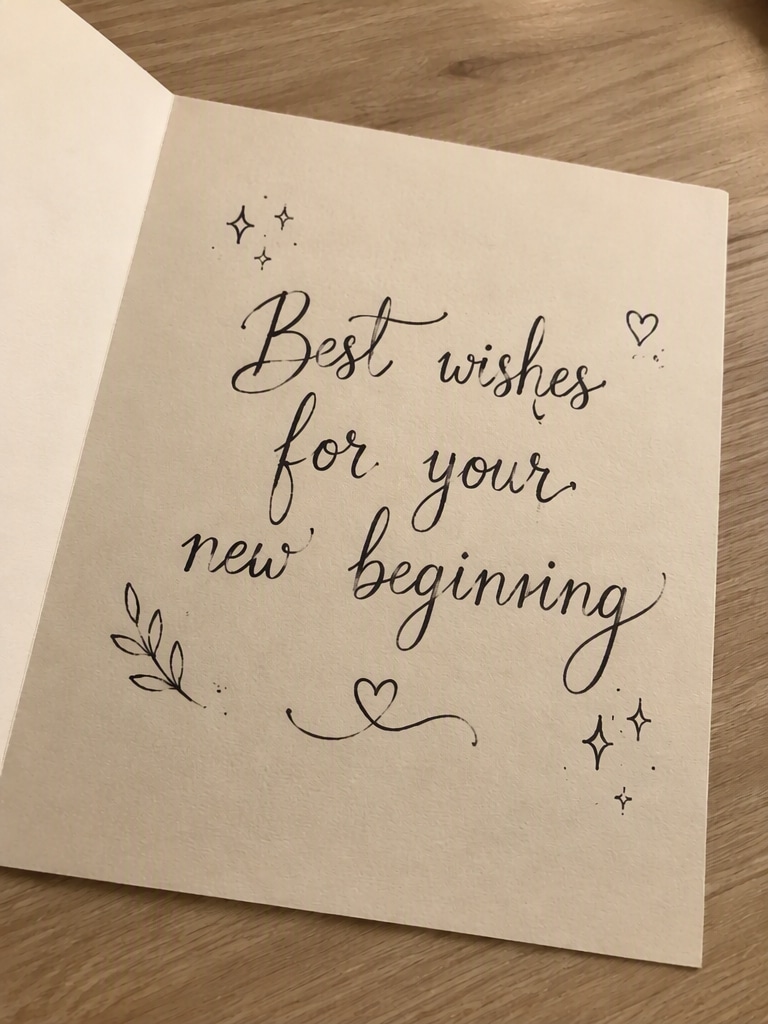 Best wishes
for your
new beginning